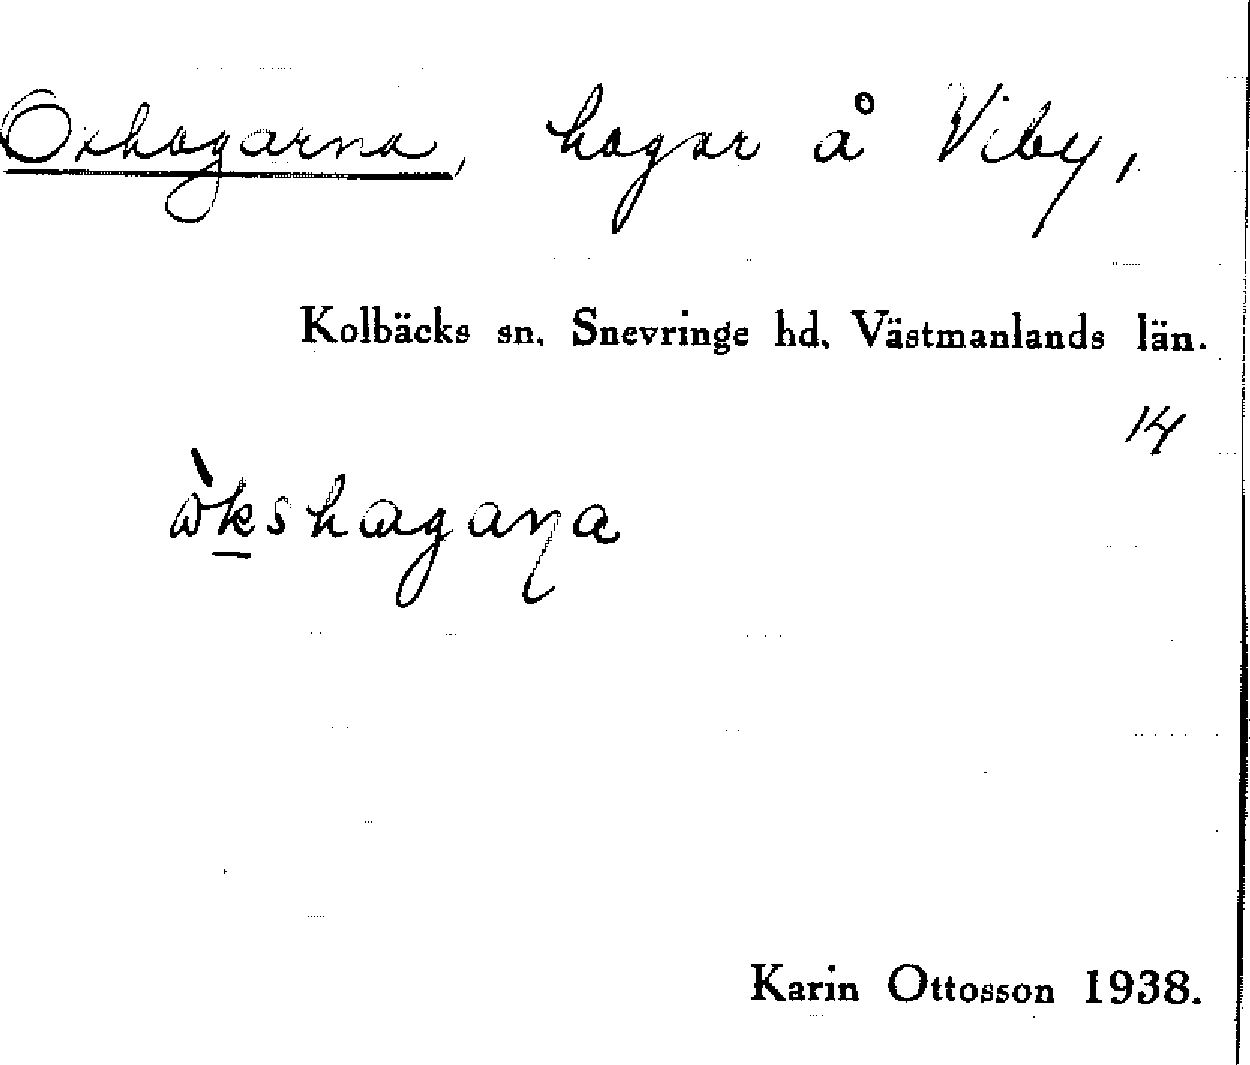 Oxhagarna, hagar å Viby,
Kolbäcks sn. Snevringe hd. Västmanlands län.
14
ὼk̲shagaɳa
Karin Ottosson 1938.